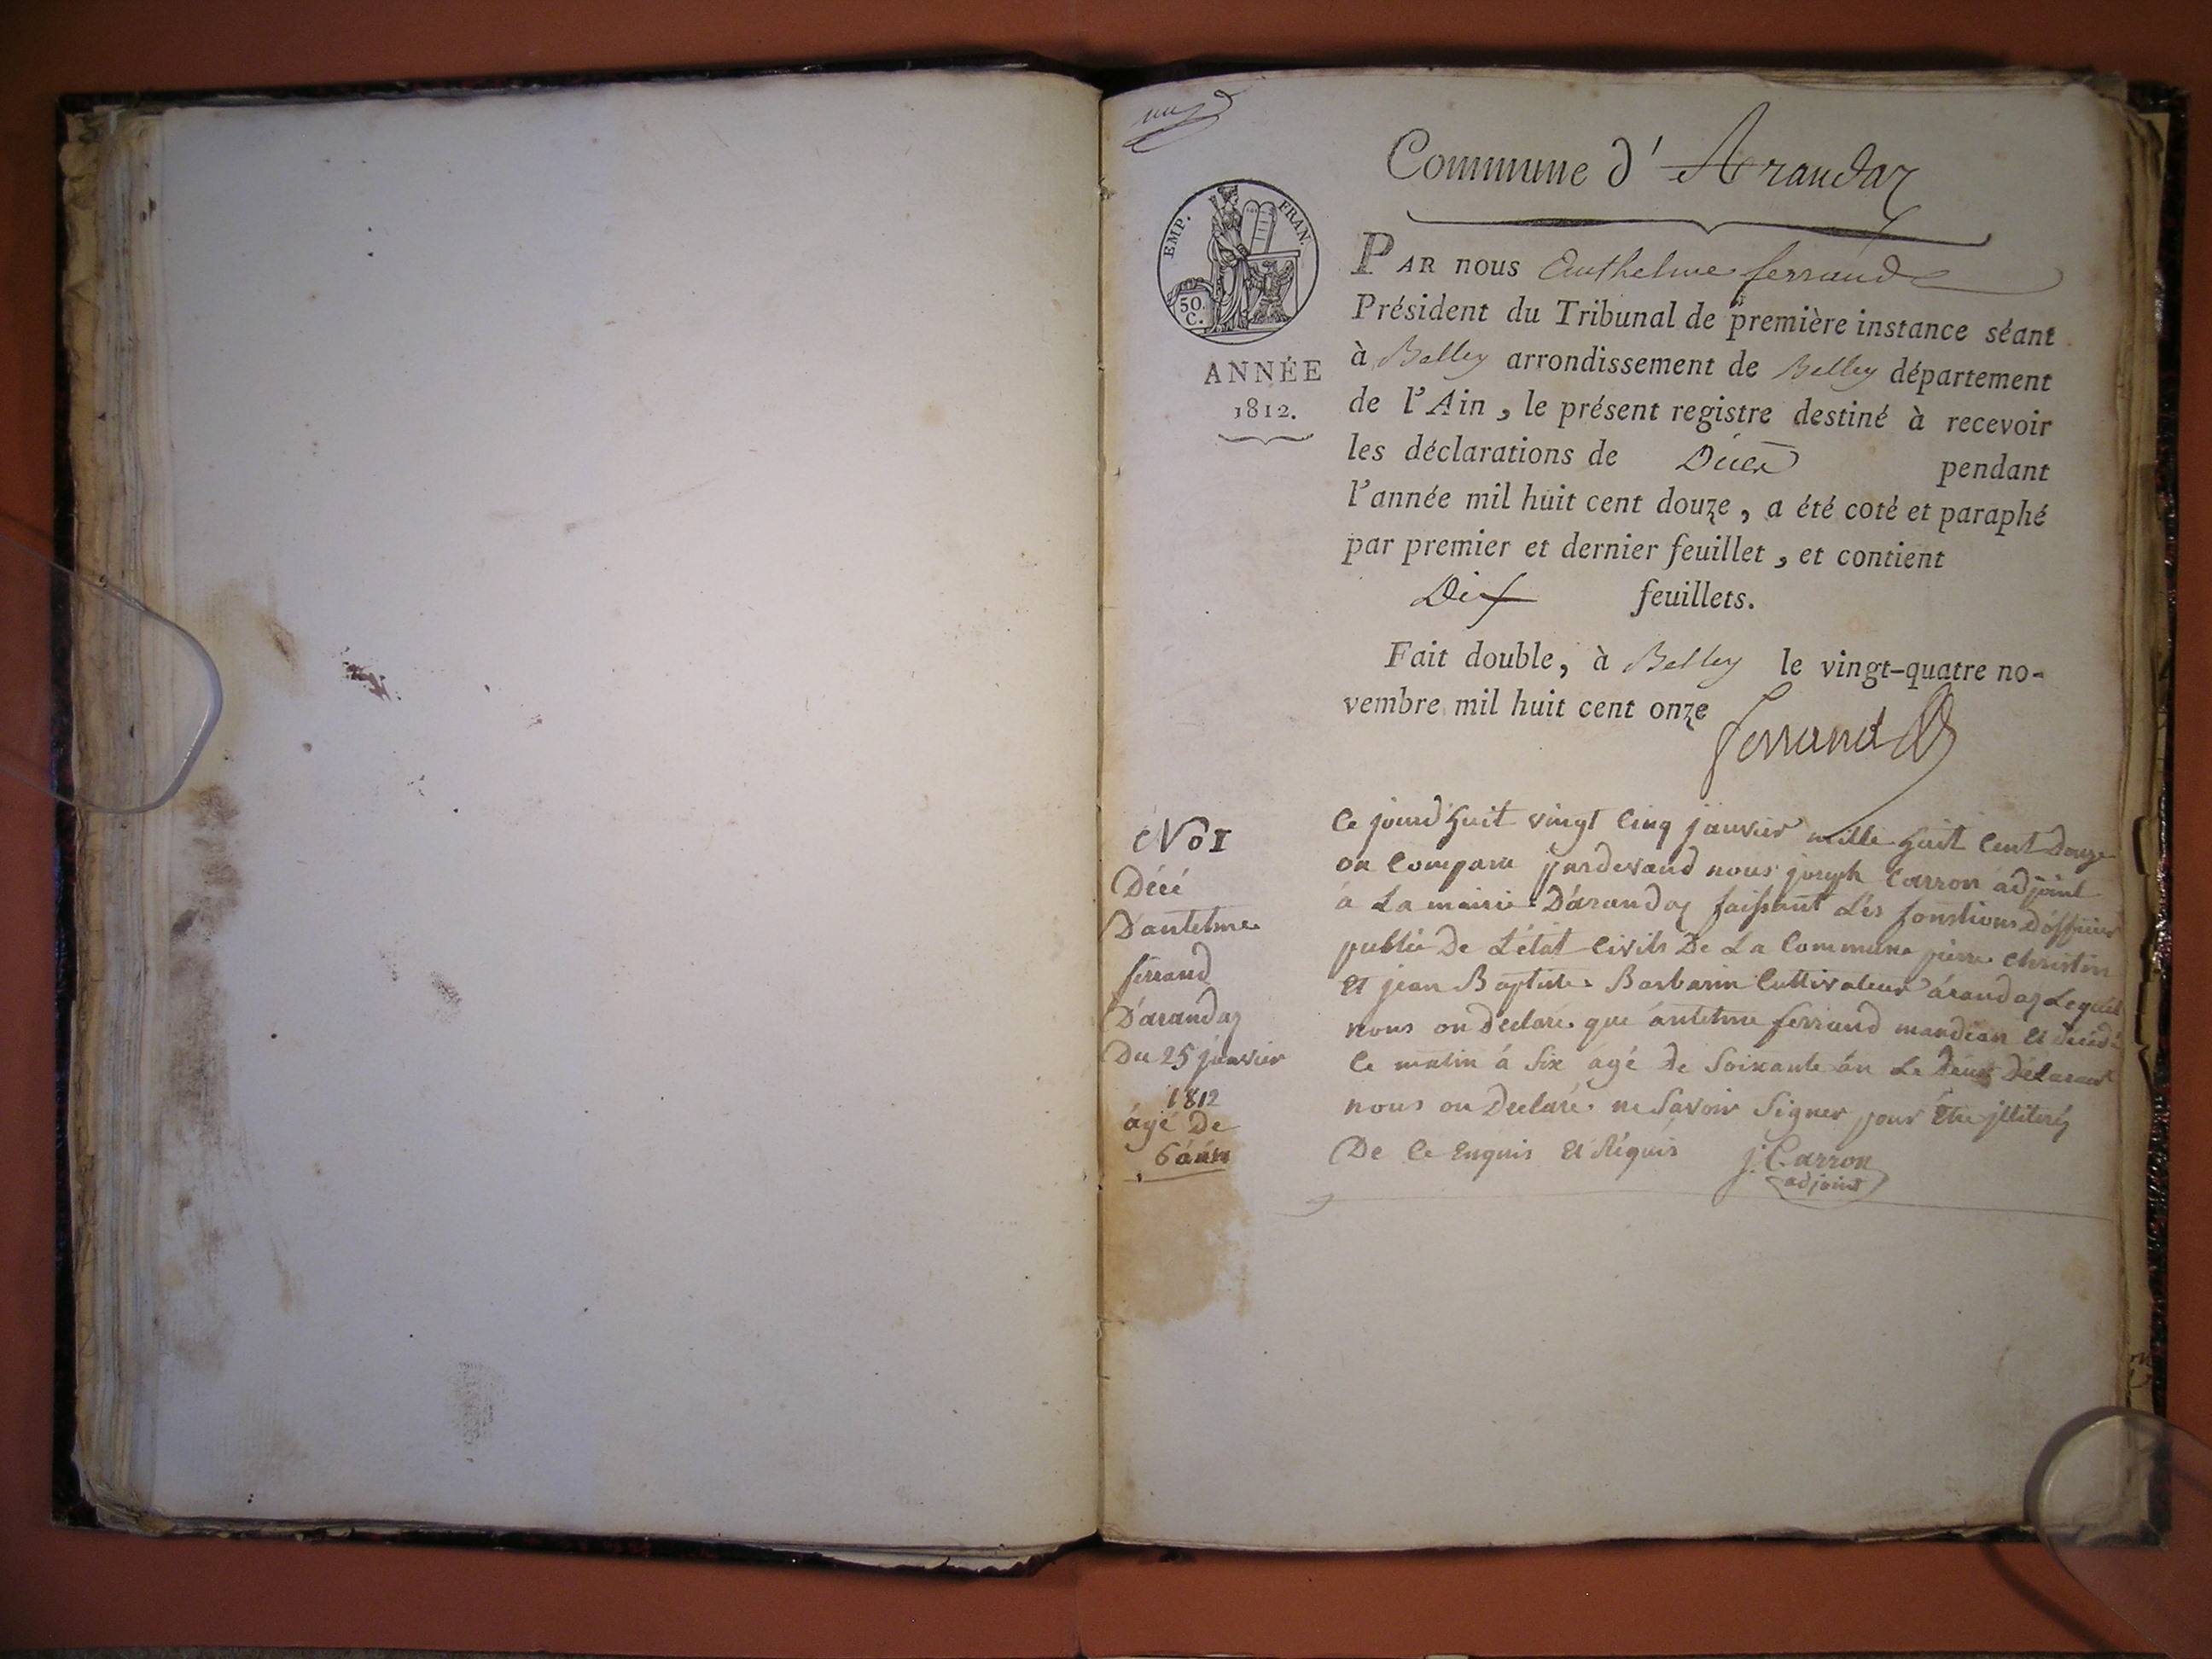 Commune d'Arandaz
EMP. FRAN.
50 C.
ANNÉE
1812.
PAR nous Anthelme ferrand
Président du Tribunal de première instance séant
à Belley arrondissement de Belley département
de l'Ain, le présent registre destiné à recevoir
les déclarations de Décès pendant
l'année mil huit cent douze, a été coté et paraphé
par premier et dernier feuillet, et contient
Dix feuillets.
Fait double, à Belley le vingt-quatre no-
vembre mil huit cent onze
ferrand
No 1
Décé
D'antelme
ferrand
D'arandaz
Du 25 janvier
1812
âgé De
Ce jourd'huit vingt Cinq janvier mille huit Cent Douze
on Comparu pardevand nous joseph Carron adjoint
à La mairie D'arandaz faissant Les fonstions D'officier
publié De L'état Civils De La Commune pierre Christin
Et jean Baptiste Barbarin Cultivateur à arandaz Lequel
nous on Déclaré que antelme ferrand mandian Et décédé
Ce matin à Six agé de Soixante án Le Déclarant
nous on Declaré ne Savoir Signer pour Etre jlliteréz
De Ce Enquis Et Réquis
J. Carron
adjoint